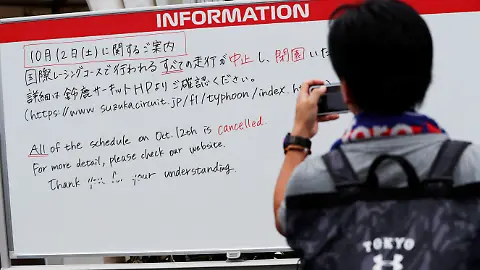 INFORMATION
10月12日(土)に関するご案内
国際レーシングコースで行われるすべての走行が中止し、閉園いた
詳細は鈴鹿サーキットHPよりご確認ください。
(https://www.suzukacircuit.jp/f1/typhoon/index.h
All of the schedule on Oct. 12th is cancelled.
For more detail, please check our website.
Thank your understanding.
TOKYO